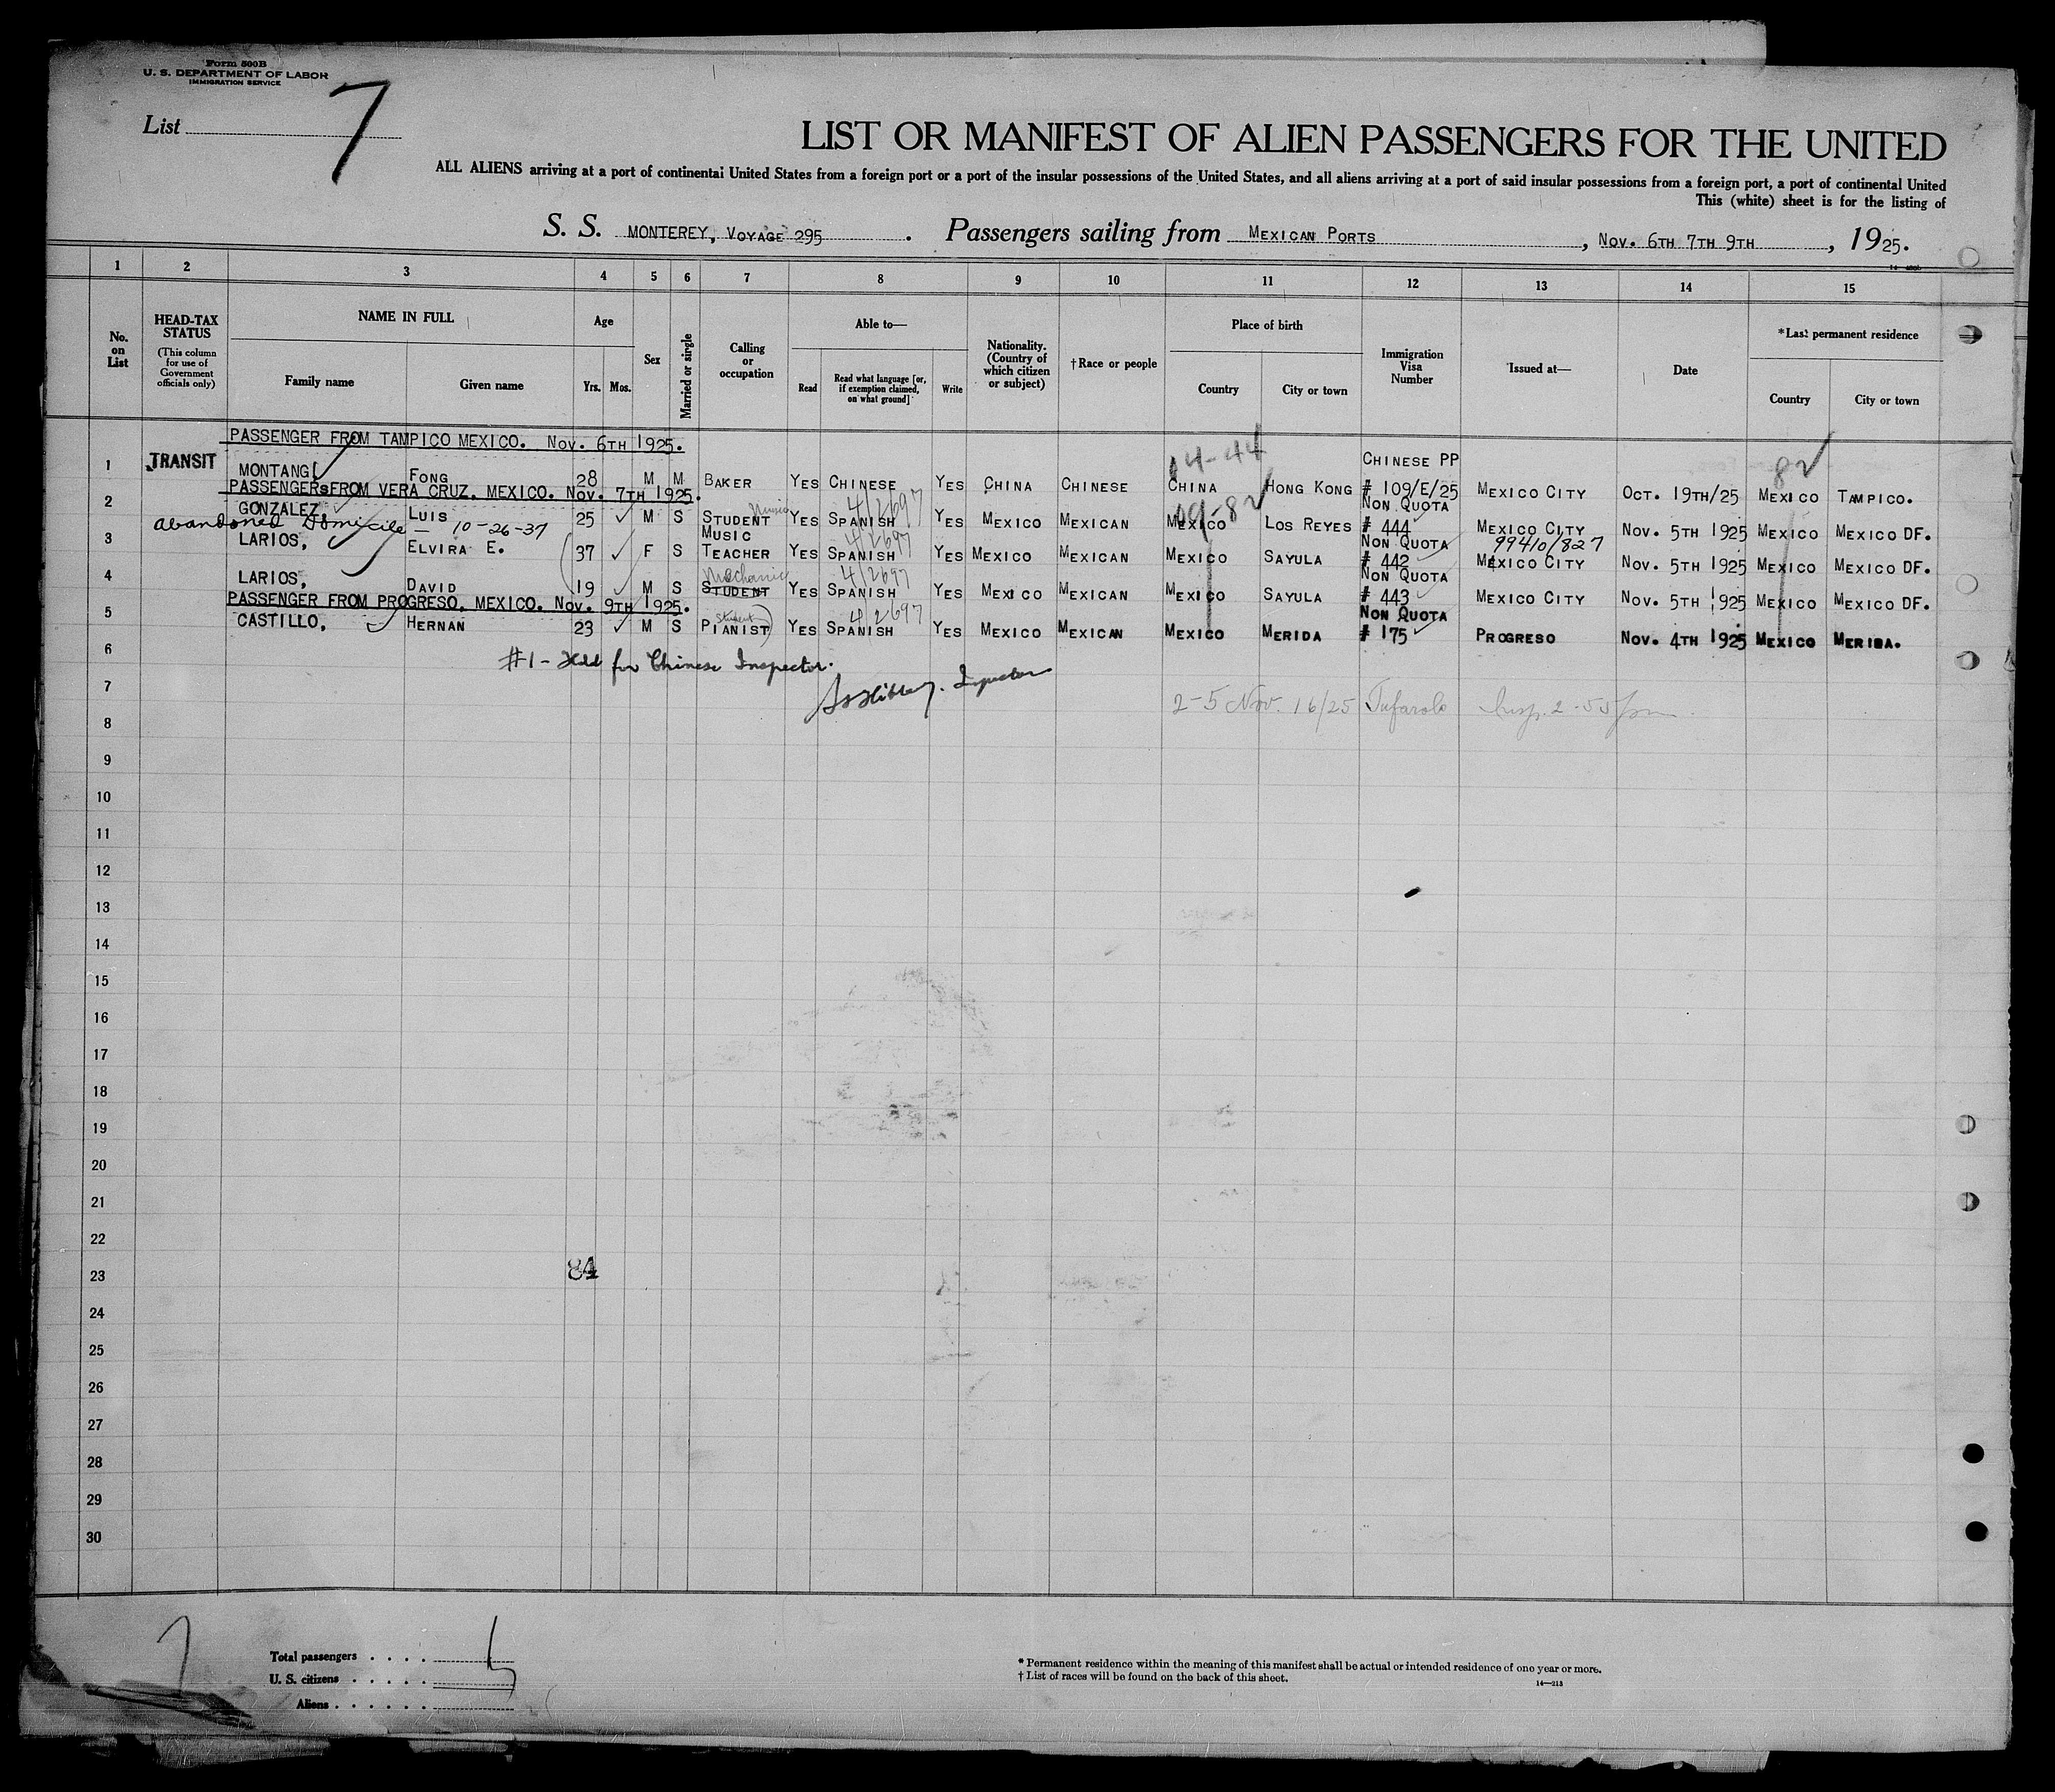 Form 500B
U. S. DEPARTMENT OF LABOR
IMMIGRATION SERVICE
List 7
LIST OR MANIFEST OF ALIEN PASSENGERS FOR THE UNITED
ALL ALIENS arriving at a port of continental United States from a foreign port or a port of the insular possessions of the United States, and all aliens arriving at a port of said insular possessions from a foreign port, a port of continental United
This (white) sheet is for the listing of
S. S. MONTEREY, VOYAGE 295. Passengers sailing from MEXICAN PORTS, NOV. 6TH 7TH 9TH, 1925.
1 2 3 4 5 6 7 8 9 10 11 12 13 14 15
No. on List
HEAD-TAX STATUS
(This column for use of Government officials only)
NAME IN FULL
Family name
Given name
Age
Yrs. Mos.
Sex
Married or single
Calling or occupation
Able to—
Read
Read what language [or, if exemption claimed, on what ground]
Write
Nationality. (Country of which citizen or subject)
†Race or people
Place of birth
Country
City or town
Immigration Visa Number
Issued at—
Date
*Last permanent residence
Country
City or town
PASSENGER FROM TAMPICO MEXICO. NOV. 6TH 1925.
14-44 CHINESE PP 82
1 TRANSIT MONTANG FONG 28 M M BAKER YES CHINESE YES CHINA CHINESE CHINA HONG KONG # 109/E/25 MEXICO CITY OCT. 19TH/25 MEXICO TAMPICO.
PASSENGERS FROM VERA CRUZ. MEXICO. NOV. 7TH 1925.
Music 412697 NON QUOTA
2 GONZALEZ, LUIS 25 M S STUDENT YES SPANISH YES MEXICO MEXICAN MEXICO LOS REYES # 444 MEXICO CITY NOV. 5TH 1925 MEXICO MEXICO DF.
abandoned Domicile — 10-26-37
412697 NON QUOTA 99410/827
3 LARIOS, ELVIRA E. 37 F S MUSIC TEACHER YES SPANISH YES MEXICO MEXICAN MEXICO SAYULA # 442 MEXICO CITY NOV. 5TH 1925 MEXICO MEXICO DF.
Mechanic 412697 NON QUOTA
4 LARIOS, DAVID 19 M S STUDENT YES SPANISH YES MEXICO MEXICAN MEXICO SAYULA # 443 MEXICO CITY NOV. 5TH 1925 MEXICO MEXICO DF.
PASSENGER FROM PROGRESO. MEXICO. NOV. 9TH 1925.
Student 412697 NON QUOTA
5 CASTILLO, HERNAN 23 M S PIANIST YES SPANISH YES MEXICO MEXICAN MEXICO MERIDA # 175 PROGRESO NOV. 4TH 1925 MEXICO MERIDA.
6
#1 - Held for Chinese Inspector.
7
Inspector
2-5 Nov. 16/25 Insp. 2-55 pm
8
9
10
11
12
13
14
15
16
17
18
19
20
21
22
23
84
24
25
26
27
28
29
30
7
Total passengers . . . . 5
U. S. citizens . . . . .
Aliens . . . . . .
* Permanent residence within the meaning of this manifest shall be actual or intended residence of one year or more.
† List of races will be found on the back of this sheet.
14—213